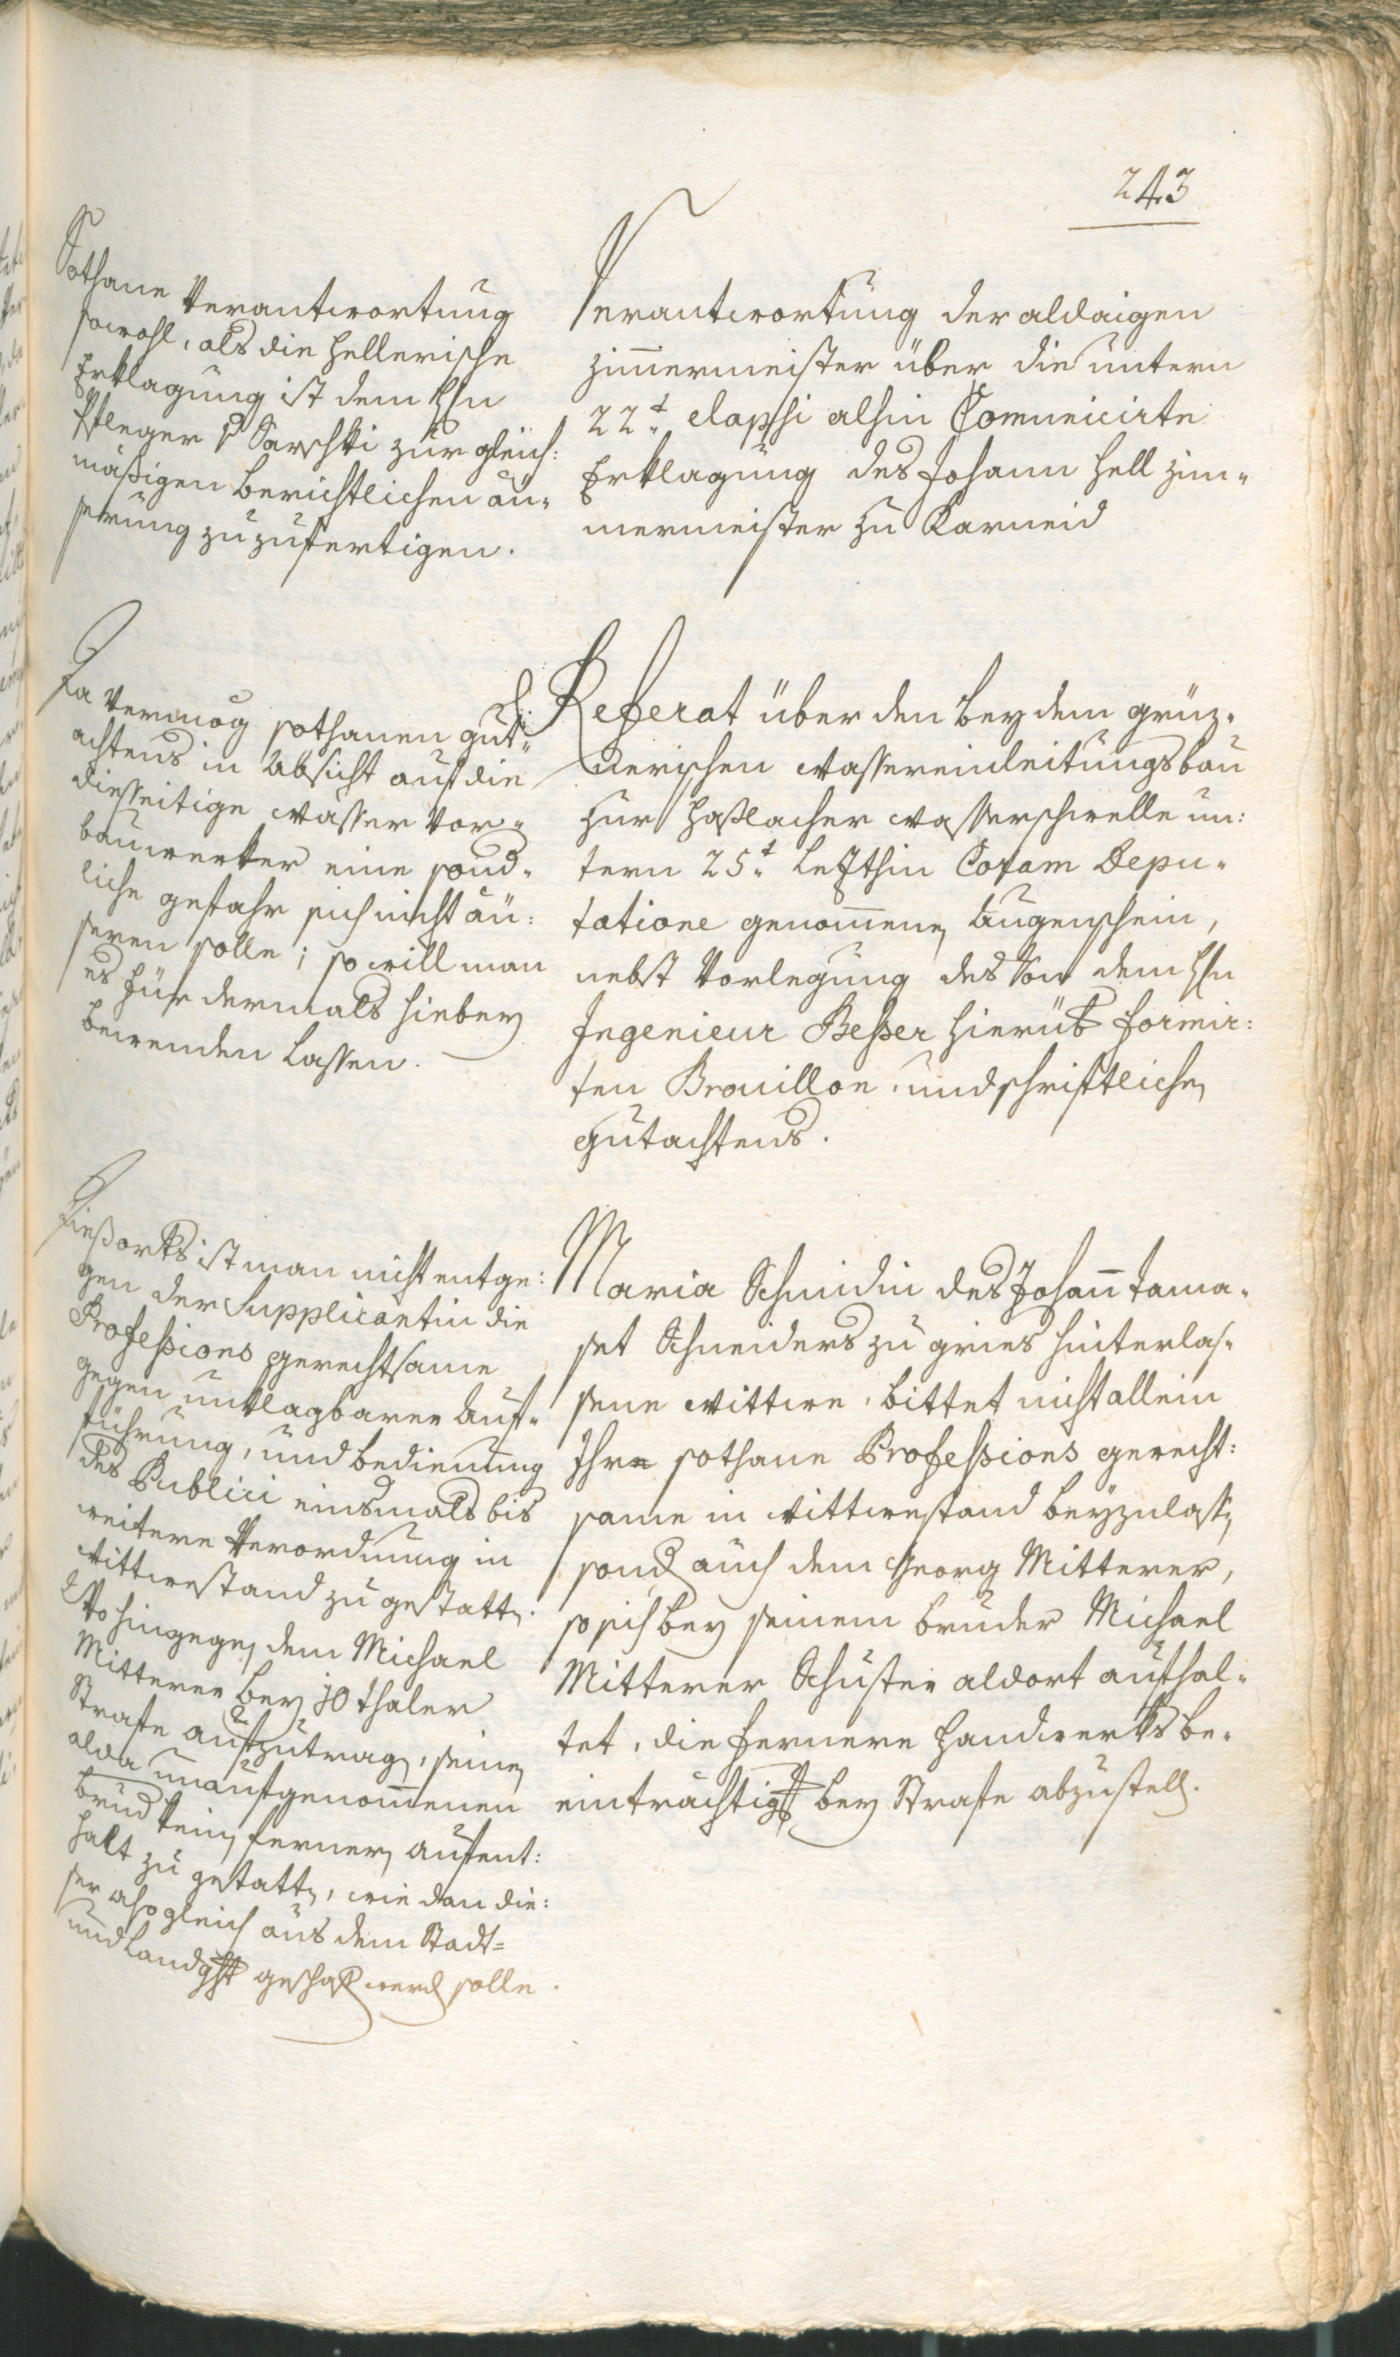 243
Sothane Verantwortung
sowohl, als die Hellerische
Erklagung ist dem Hln
Pfleger v Sarschki zur gleich:
mäßigen berichtlichen äu„
serung zuzufertigen.
Verantwortung der aldaigen
Zimmermeister über die untern
22t. elapsi alhin Comunicirte
Erklagung des Johann Hell Zim„
mermeister zu Karneid
Da vermög sothanen Gut„
achtens in Absicht auf die
diesseitige Wasser Vor„
bauwerker eine sond„
liche gefahr sich nicht äu:
seren solle; so will man
es für dermals hiebey
bewenden lassen.
Referat über den bey dem grüz„
nerischen Wassereinleitungsbau
zur Haßlacher Wasserschwelle un:
tern 25t. letzthin Coram Depu„
tatione genommenen Augenschein,
nebst Vorlegung des von dem Hln
Ingenieur Besser hierüb formir:
ten Brouillon, und schriftlichen
Gutachtens.
Dießorts ist man nicht entge:
gen der Supplicantin die
Professions gerechtsame
gegen unklagbarer Auf„
führung, und bedienung
des Publici einsmals bis
weitere Verordnung in
Wittwestand zu gestatten.
Wo hingegen dem Michael
Mitterer bey 10 thaler
Strafe aufzutragen, seinen
alda unaufgenommenen
Brud keinen fernern aufent:
halt zu gestatten, wie dan die:
ser alsogleich aus dem Stadt=
und Landght geschaft werd solle.
Maria Schmidin des Johann Toma„
set Schneiders zu gries hinterlas„
sene Wittwe, bittet nicht allein
Ihre sothane Professions gerecht:
same in Wittwestand beyzulassen
sond auch dem Georg Mitterer,
so sich bey seinem bruder Michael
Mitterer Schuster aldort aufhal„
tet, die fernere Handwerksbe„
einträchtigg bey Strafe abzustell.